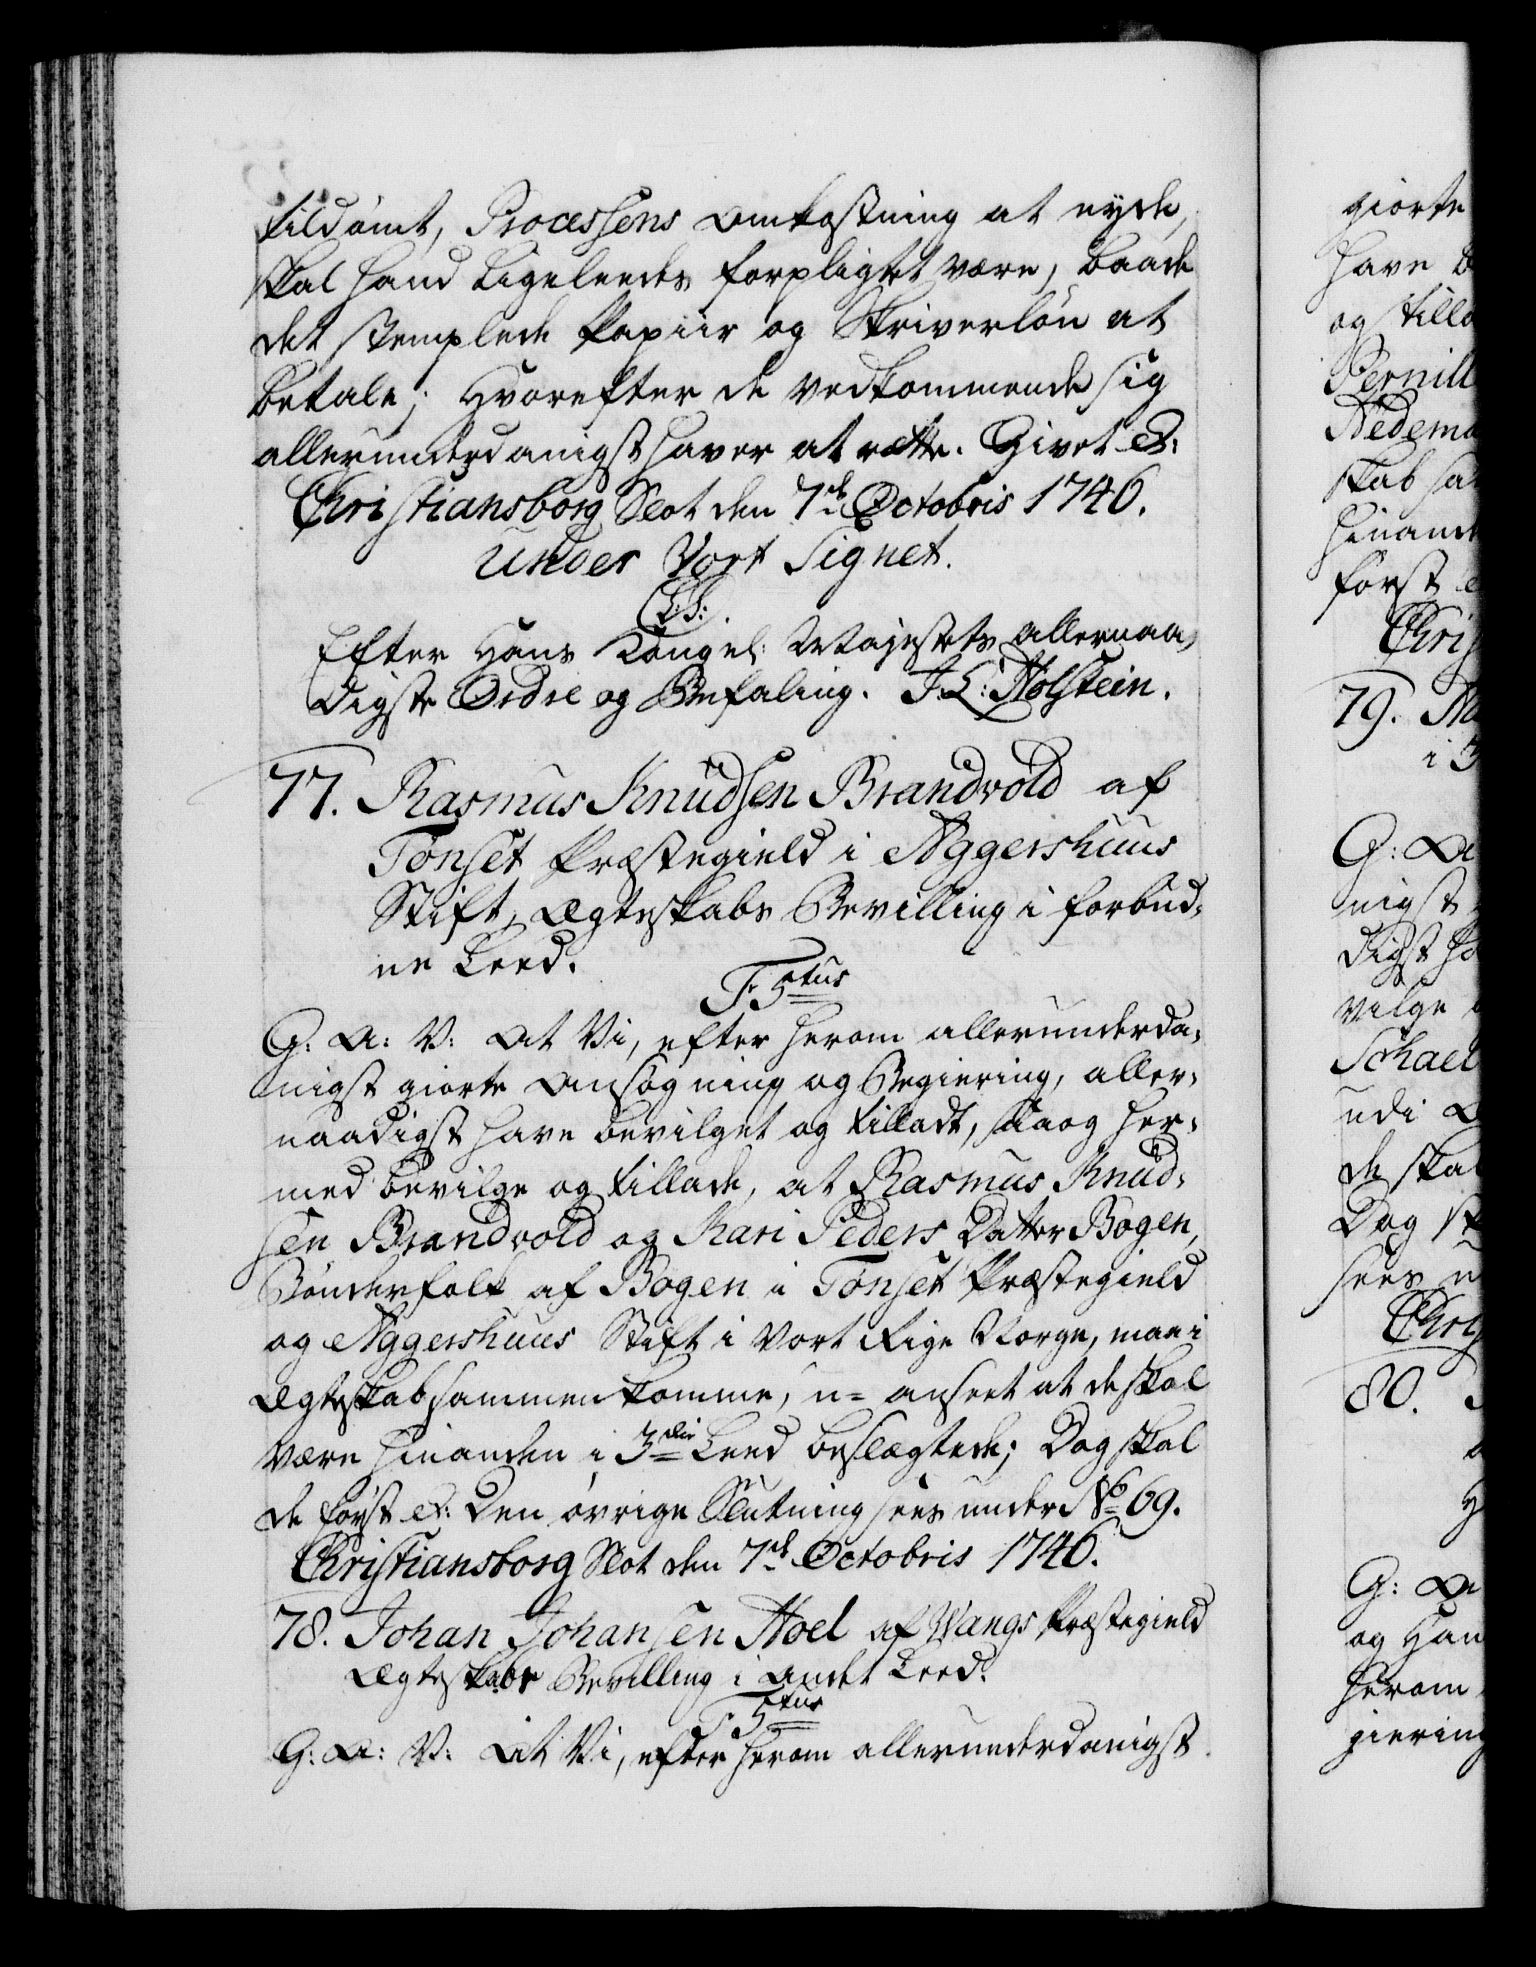 tildømt, Processens Omkostning at nyde,
skal hand ligeleedes forpligtet være, baade
det stemplede Papiir og Skriverløn at
betale; Hvorefter de vedkommende sig
allerunderdanigst haver at rætte. Givet &:
Christiansborg Slot den 7de Octobris 1746.
Under Vort Signet.
(L.S.)
Efter Hans Kongel: Majestets allernaa,
digste Ordre og Befaling. J. L: Holstein.
77. Rasmus Knudsen Brandvold af
Tonset Præstegield i Aggershuus
Stift, Ægteskabs Bevilling i forbud,
ne Leed.
T: 5tus
G: A: V: At Vi, efter herom allerunderda,
nigst giorte Ansøgning og Begiering, aller,
naadigst have bevilget og tilladt, saa og her,
med bevilge og tillade, at Rasmus Knud,
sen Brandvold og Kari Peders Datter Bogen,
Bønderfolk af Bogen i Tonset Præstegield
og Aggershuus Stift i Vort Rige Norge, maa i
Ægteskab sammenkomme, u= anseet at de skal
være hinanden i 3die Leed beslægtede; Dog skal
de først &: Den øvrige Slutning sees under No 69.
Christiansborg Slot den 7de Octobris 1746.
78. Johan Johansen Hoel af Wangs Præstegield
Ægteskabs Bevilling i andet Leed.
T: 5tus
G: A: V: At Vi, efter herom allerunderdanigst
giorte
have b
og till
Pernill
Hedema
skab sa
hinand
først e
Chris
79.
i
G: A
nigst
digst ha
vilge
Schael
udi
de skal
Dog sk
sees u
Chris
80.
G: A
og Han
herom
giering